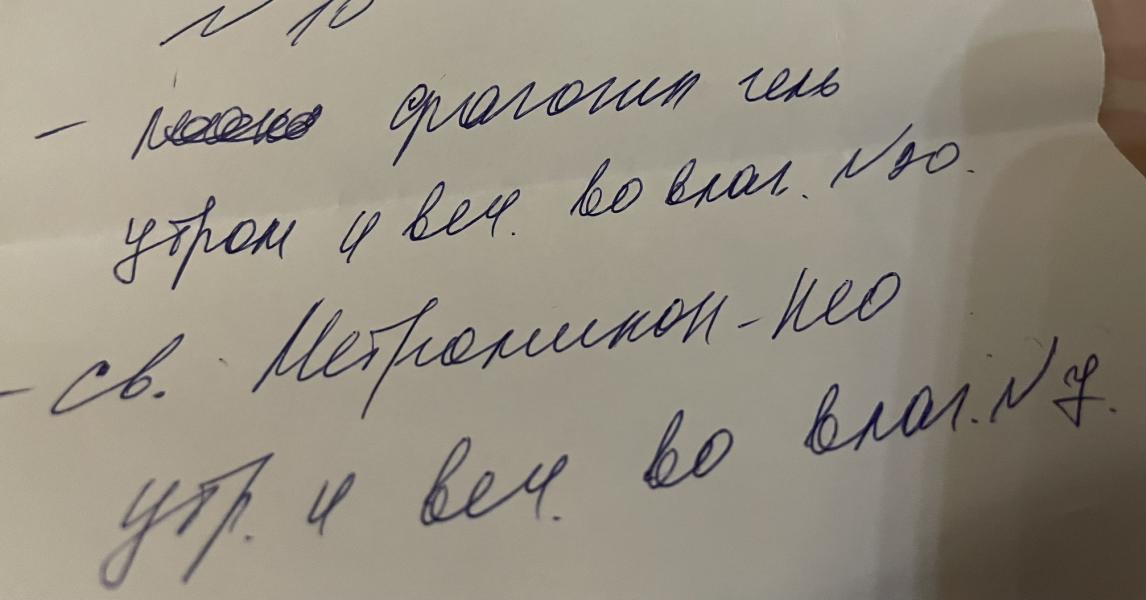 N 10
- фрагогин гель
утром и веч. во влаг. N20.
- св. Метромикон-Нео
утр. и веч. во влаг. N7.